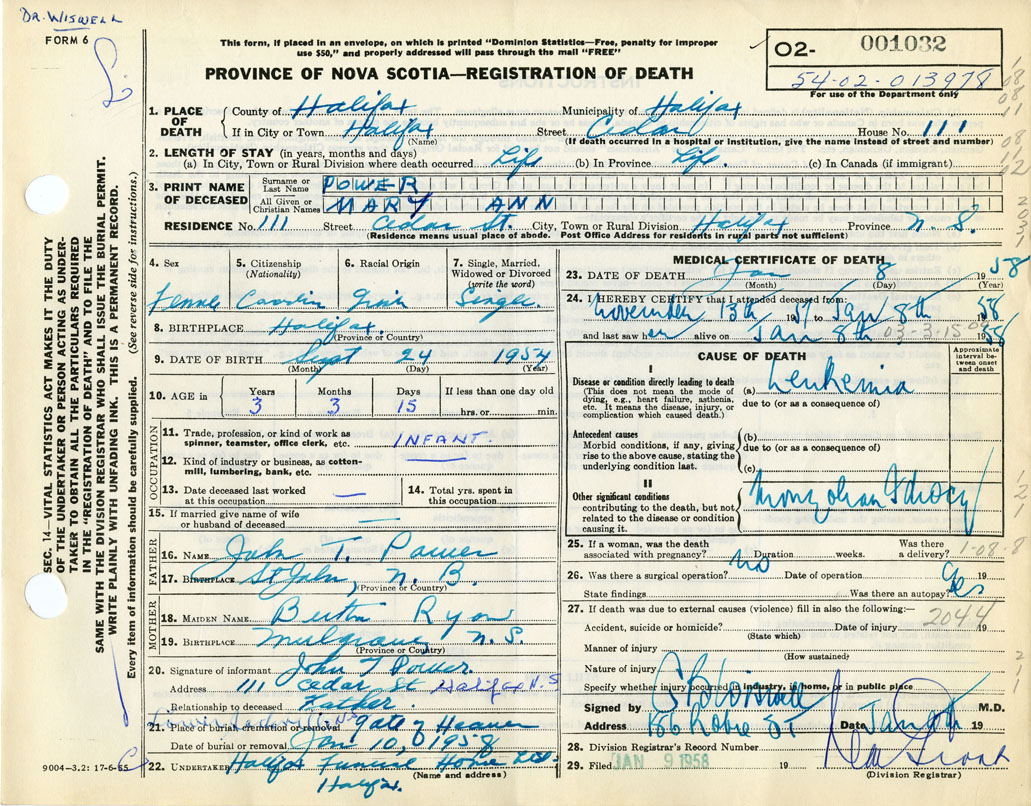 DR. WISWELL
FORM 6
This form, if placed in an envelope, on which is printed "Dominion Statistics—Free, penalty for improper
use $50," and properly addressed will pass through the mail "FREE"
PROVINCE OF NOVA SCOTIA—REGISTRATION OF DEATH
O2- 001032
54-02-013978
For use of the Department only
1. PLACE OF DEATH
County of Halifax Municipality of Halifax
If in City or Town Halifax Street Cedar House No. 111
(Name) (If death occurred in a hospital or institution, give the name instead of street and number)
2. LENGTH OF STAY (in years, months and days)
(a) In City, Town or Rural Division where death occurred Life (b) In Province Life. (c) In Canada (if immigrant)
3. PRINT NAME OF DECEASED
Surname or Last Name POWER
All Given or Christian Names MARY ANN
RESIDENCE No. 111 Street Cedar St. City, Town or Rural Division Halifax Province N. S.
(Residence means usual place of abode. Post Office Address for residents in rural parts not sufficient)
4. Sex 5. Citizenship (Nationality) 6. Racial Origin 7. Single, Married, Widowed or Divorced (write the word)
Female Irish Single
8. BIRTHPLACE Halifax.
(Province or Country)
9. DATE OF BIRTH Sept 24 1954
(Month) (Day) (Year)
10. AGE in Years Months Days If less than one day old
3 3 15 hrs. or min.
OCCUPATION
11. Trade, profession, or kind of work as spinner, teamster, office clerk, etc. INFANT.
12. Kind of industry or business, as cotton-mill, lumbering, bank, etc. —
13. Date deceased last worked at this occupation — 14. Total yrs. spent in this occupation
15. If married give name of wife or husband of deceased —
FATHER
16. NAME John T. Power
17. BIRTHPLACE St John, N. B.
(Province or Country)
MOTHER
18. MAIDEN NAME Ryan
19. BIRTHPLACE Mulgrave N. S.
(Province or Country)
20. Signature of informant John T Power.
Address 111 Cedar St Halifax N.S
Relationship to deceased Father.
21. Place of burial cremation or removal Gate of Heaven
Date of burial or removal Jan 10, 1958
22. UNDERTAKER Halifax Funeral Home Ltd.
(Name and address)
Halifax.
9004—3.2: 17-6-55
MEDICAL CERTIFICATE OF DEATH
23. DATE OF DEATH Jan 8 1958
(Month) (Day) (Year)
24. I HEREBY CERTIFY that I attended deceased from:
November 13th 1957 to Jan 8th 1958
and last saw her alive on Jan 8th 1958
CAUSE OF DEATH
Approximate interval between onset and death
I
Disease or condition directly leading to death
(This does not mean the mode of dying, e.g., heart failure, asthenia, etc. It means the disease, injury, or complication which caused death.)
(a) Leukemia
due to (or as a consequence of)
Antecedent causes
Morbid conditions, if any, giving rise to the above cause, stating the underlying condition last.
(b)
due to (or as a consequence of)
(c)
II
Other significant conditions
contributing to the death, but not related to the disease or condition causing it.
Mongolian Idiocy
25. If a woman, was the death associated with pregnancy? No Duration weeks. Was there a delivery?
26. Was there a surgical operation? Date of operation 19
State findings Was there an autopsy? Yes
27. If death was due to external causes (violence) fill in also the following:—
2044
Accident, suicide or homicide? Date of injury 19
(State which)
Manner of injury
(How sustained)
Nature of injury
Specify whether injury occurred in industry, in home, or in public place
Signed by M.D.
Address 186 Robie ST Date Jan 19
28. Division Registrar's Record Number
29. Filed JAN 9 1958 19
(Division Registrar)
SEC. 14—VITAL STATISTICS ACT MAKES IT THE DUTY
OF THE UNDERTAKER OR PERSON ACTING AS UNDERTAKER TO OBTAIN ALL THE PARTICULARS REQUIRED
IN THE "REGISTRATION OF DEATH" AND TO FILE THE
SAME WITH THE DIVISION REGISTRAR WHO SHALL ISSUE THE BURIAL PERMIT.
WRITE PLAINLY WITH UNFADING INK. THIS IS A PERMANENT RECORD.
Every item of information should be carefully supplied. (See reverse side for instructions.)